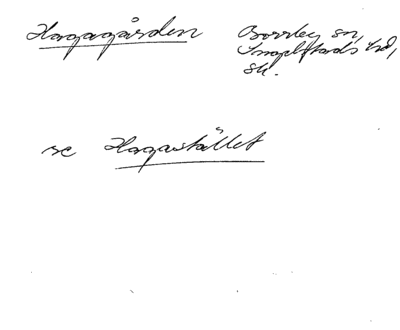 Hagagården Borrby sn,
Ingelstads hd,
Sk.
se Hagastället